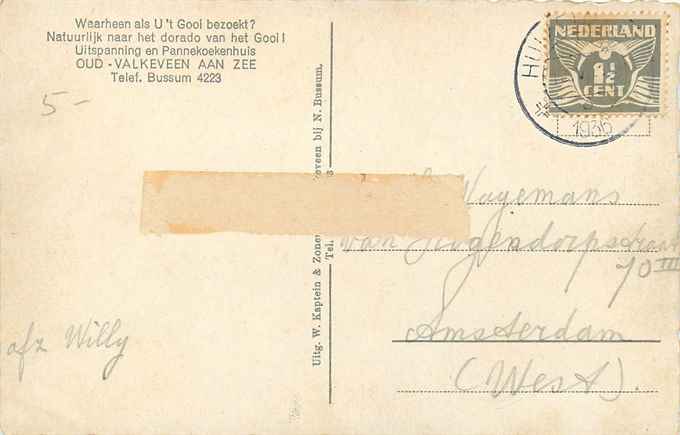 Waarheen als U 't Gooi bezoekt?
Natuurlijk naar het dorado van het Gooi!
Uitspanning en Pannekoekenhuis
OUD - VALKEVEEN AAN ZEE
Telef. Bussum 4223
5-
afz Willy
Uitg. W. Kaptein & Zonen
keveen bij N. Bussum,
Tel.
NEDERLAND
1½
CENT
1936
Wagemans
van Hogendorpstraat
70 III
Amsterdam
(West).